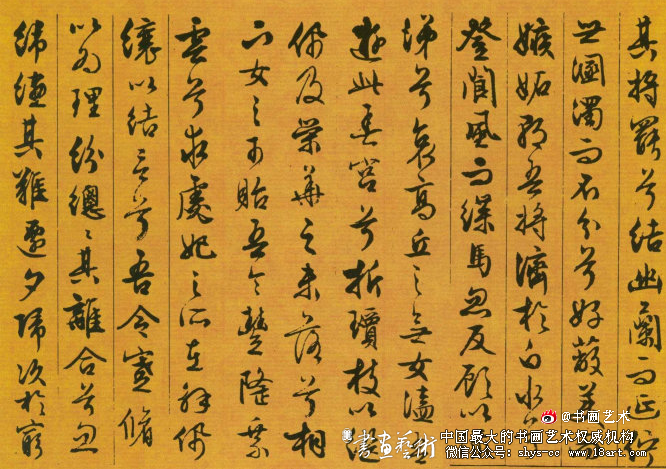 其將罷兮結幽蘭而延佇
世溷濁而不分兮好蔽美
嫉妬朝吾將濟於白水兮
登閬風而緤馬忽反顧以
涕兮哀高丘之無女溘吾
遊此春宮兮折瓊枝以繼
佩及榮華之未落兮相
下女之可貽吾令豐隆乘
雲兮求處妃之所在解佩
纕以結言兮吾令蹇脩
以為理紛總〻其離合兮忽
緯繣其難遷夕歸次於窮
書画藝術
@书画艺术
中国最大的书画艺术权威机构
微信公众号：shys-cc www.18art.com